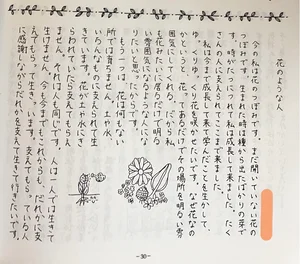 花のような人
今の私は花のつぼみです。まだ開いていない花の
つぼみです。生まれた時は種から出たばかりの芽で
す。時がたつにつれ私は成長して来ました。たく
さんの人に支えられてここまで来ました。
私は今まで成長して来て学んだことを生かして、
ゆっくりゆっくり花を咲かせたいです。なぜ花なの
かというと、花ってある花でその場所を明るい雰
囲気にしてくれる。だから私
も花みたいに居るだけで明る
い雰囲気になるような人にな
りたいと思ったからです。
もう一つは、花は何もない
所では育ちません。土や水、
色んなものに支えられて生
きています。花が土や水にさ
さえられているように人も支えられて
ません。それは人も同じです。人は一人では生きて
生けません。今も今までもこれからも、だれかに支
えてもらって生きています。支えてもらっている人
に感謝しながらだれかを支えて生きて行きたいです。
-30-